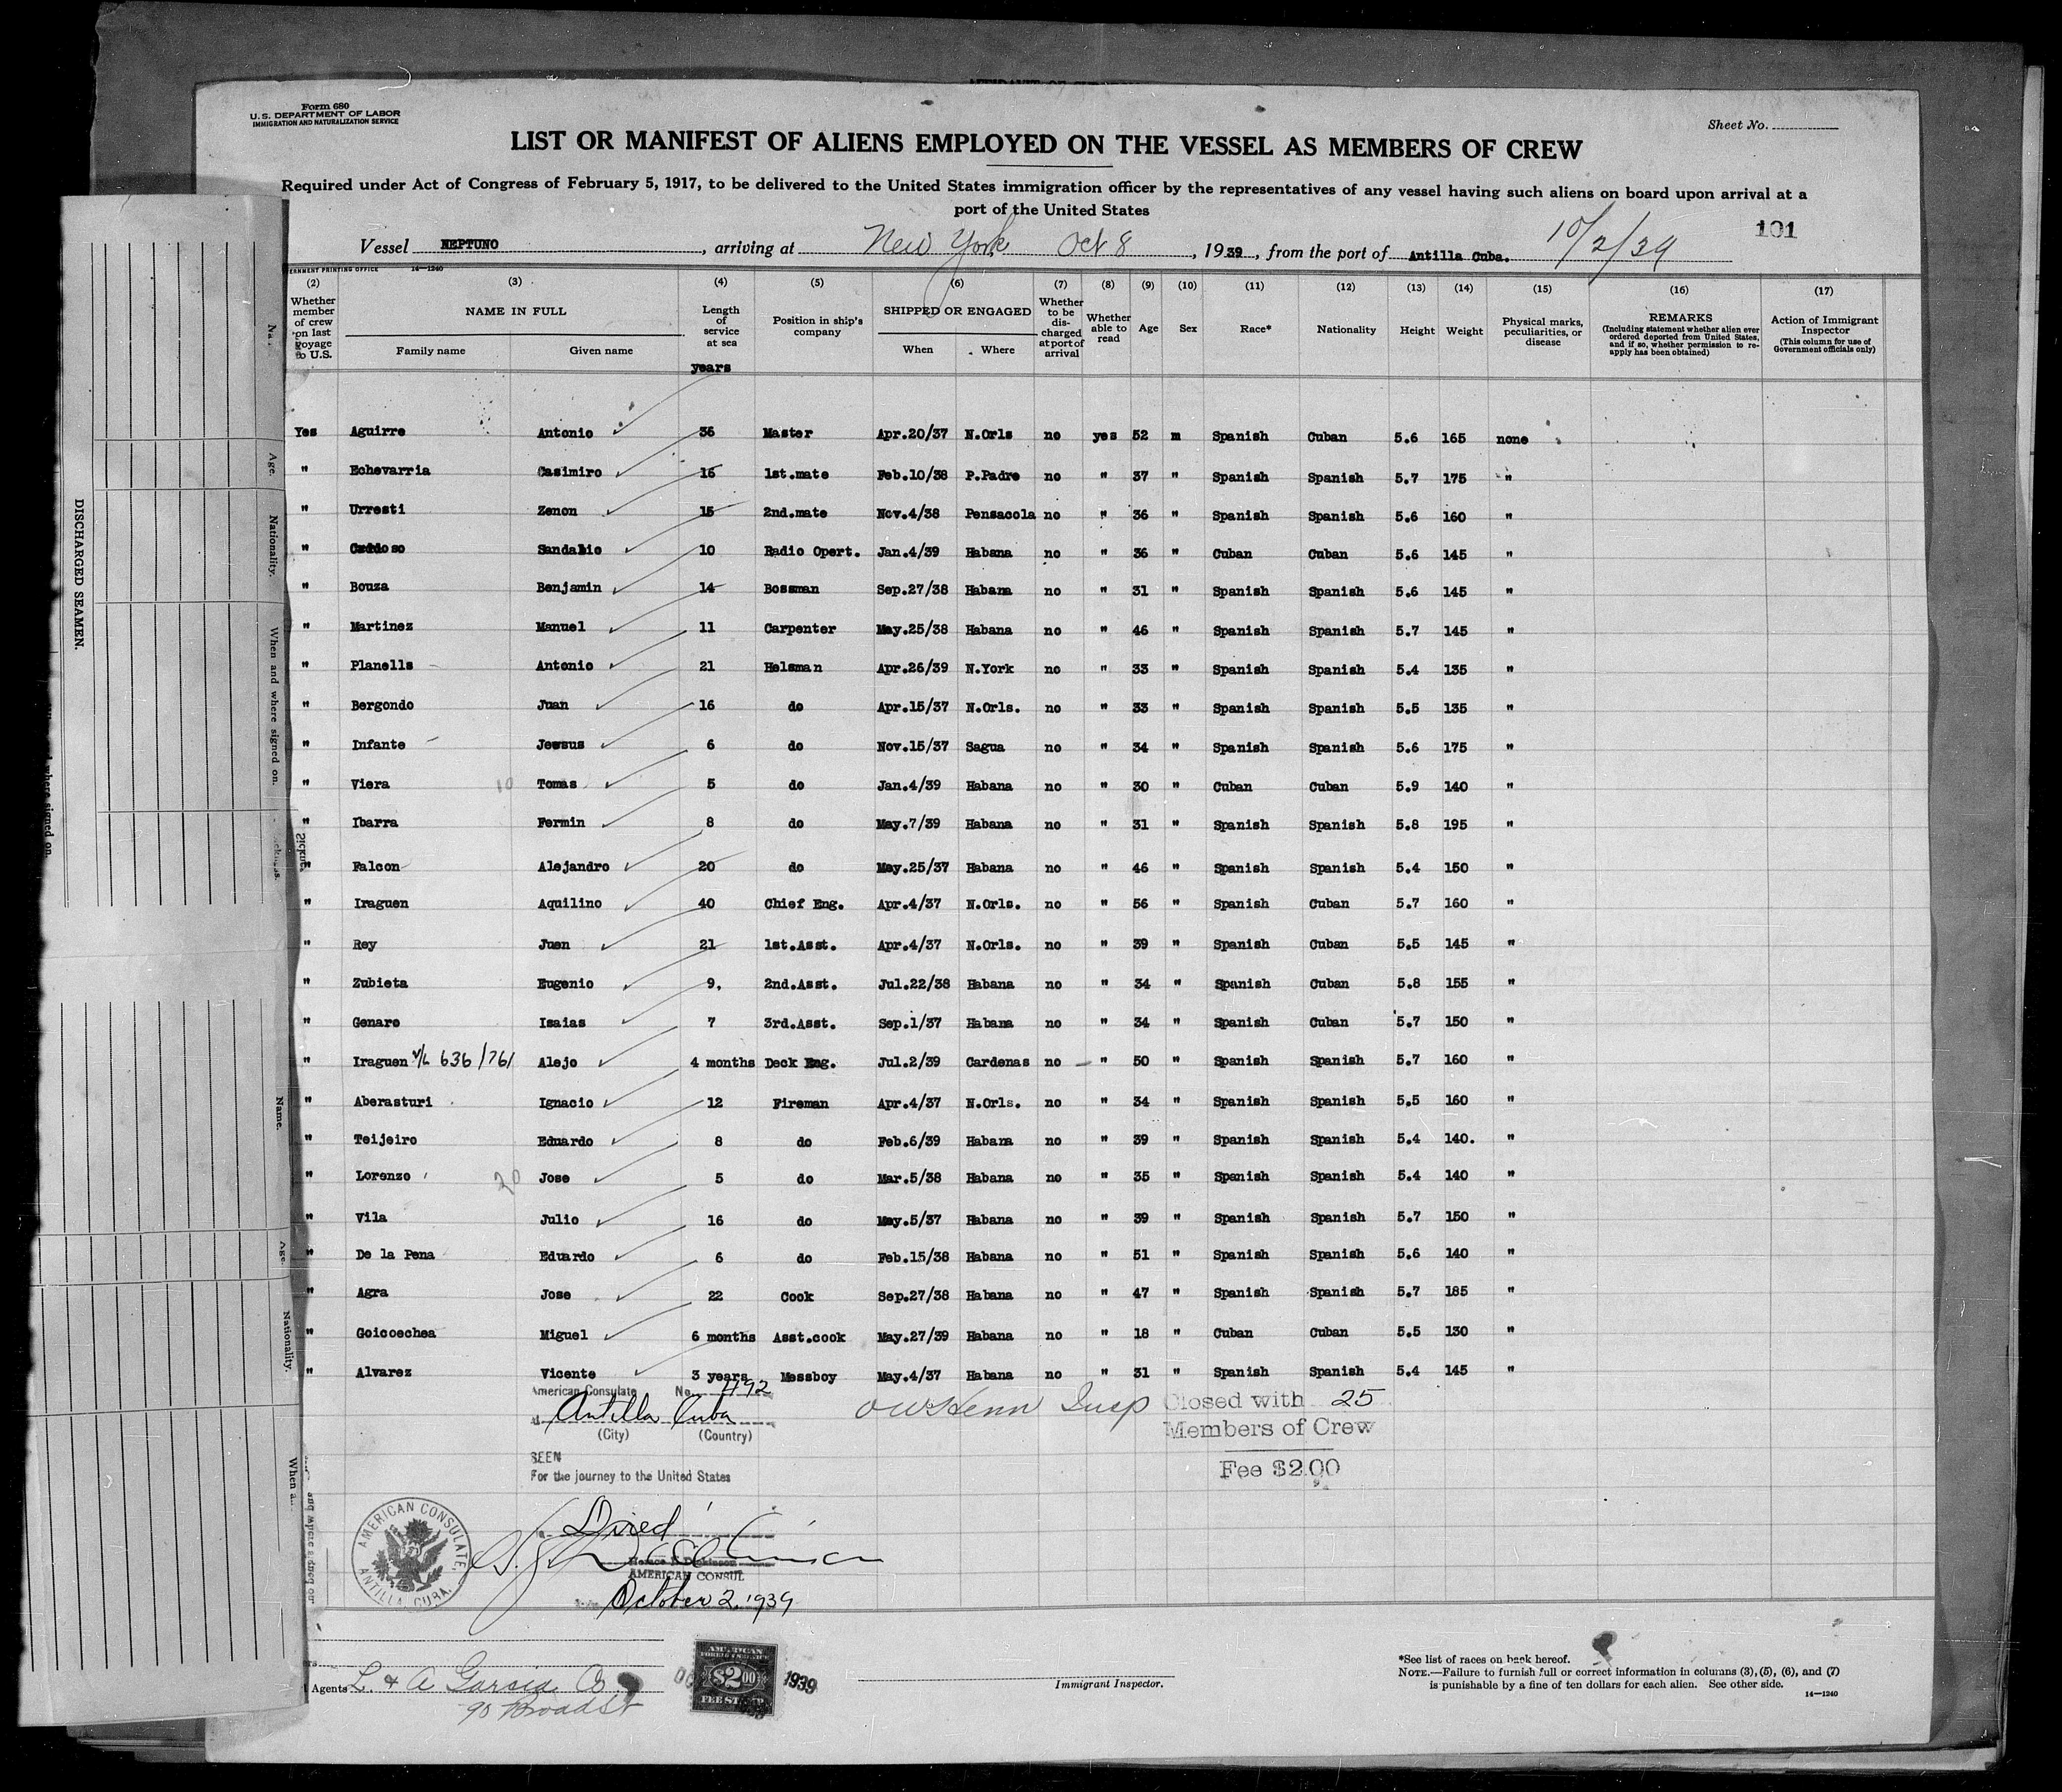 Form 680
U.S. DEPARTMENT OF LABOR
IMMIGRATION AND NATURALIZATION SERVICE
Sheet No.
LIST OR MANIFEST OF ALIENS EMPLOYED ON THE VESSEL AS MEMBERS OF CREW
Required under Act of Congress of February 5, 1917, to be delivered to the United States immigration officer by the representatives of any vessel having such aliens on board upon arrival at a
port of the United States
101
Vessel NEPTUNO, arriving at New York Oct 8, 1939, from the port of Antilla Cuba. 10/2/39
ERNMENT PRINTING OFFICE 14—1240
(2) (3) (4) (5) (6) (7) (8) (9) (10) (11) (12) (13) (14) (15) (16) (17)
Whether member of crew on last voyage to U.S.
NAME IN FULL
Family name Given name
Length of service at sea
years
Position in ship's company
SHIPPED OR ENGAGED
When Where
Whether to be discharged at port of arrival
Whether able to read
Age
Sex
Race*
Nationality
Height
Weight
Physical marks, peculiarities, or disease
REMARKS
(Including statement whether alien ever ordered deported from United States, and if so, whether permission to reapply has been obtained)
Action of Immigrant Inspector
(This column for use of Government officials only)
Yes Aguirre Antonio 36 Master Apr.20/37 N.Orls no yes 52 m Spanish Cuban 5.6 165 none
" Echevarria Casimiro 16 1st.mate Feb.10/38 P.Padre no " 37 " Spanish Spanish 5.7 175 "
" Urresti Zenon 15 2nd.mate Nov.4/38 Pensacola no " 36 " Spanish Spanish 5.6 160 "
" Cardoso Sandalio 10 Radio Opert. Jan.4/39 Habana no " 36 " Cuban Cuban 5.6 145 "
" Bouza Benjamin 14 Bossman Sep.27/38 Habana no " 31 " Spanish Spanish 5.6 145 "
" Martinez Manuel 11 Carpenter May.25/38 Habana no " 46 " Spanish Spanish 5.7 145 "
" Planells Antonio 21 Helsman Apr.26/39 N.York no " 33 " Spanish Spanish 5.4 135 "
" Bergondo Juan 16 do Apr.15/37 N.Orls. no " 33 " Spanish Spanish 5.5 135 "
" Infante Jessus 6 do Nov.15/37 Sagua no " 34 " Spanish Spanish 5.6 175 "
" Viera 10 Tomas 5 do Jan.4/39 Habana no " 30 " Cuban Cuban 5.9 140 "
" Ibarra Fermin 8 do May.7/39 Habana no " 31 " Spanish Spanish 5.8 195 "
" Falcon Alejandro 20 do May.25/37 Habana no " 46 " Spanish Spanish 5.4 150 "
" Iraguen Aquilino 40 Chief Eng. Apr.4/37 N.Orls. no " 56 " Spanish Cuban 5.7 160 "
" Rey Juan 21 1st.Asst. Apr.4/37 N.Orls. no " 39 " Spanish Cuban 5.5 145 "
" Zubieta Eugenio 9. 2nd.Asst. Jul.22/38 Habana no " 34 " Spanish Cuban 5.8 155 "
" Genaro Isaias 7 3rd.Asst. Sep.1/37 Habana no " 34 " Spanish Cuban 5.7 150 "
" Iraguen V/L 636/761 Alejo 4 months Deck Eng. Jul.2/39 Cardenas no " 50 " Spanish Spanish 5.7 160 "
" Aberasturi Ignacio 12 Fireman Apr.4/37 N.Orls. no " 34 " Spanish Spanish 5.5 160 "
" Teijeiro Eduardo 8 do Feb.6/39 Habana no " 39 " Spanish Spanish 5.4 140. "
" Lorenzo 20 Jose 5 do Mar.5/38 Habana no " 35 " Spanish Spanish 5.4 140 "
" Vila Julio 16 do May.5/37 Habana no " 39 " Spanish Spanish 5.7 150 "
" De la Pena Eduardo 6 do Feb.15/38 Habana no " 51 " Spanish Spanish 5.6 140 "
" Agra Jose 22 Cook Sep.27/38 Habana no " 47 " Spanish Spanish 5.7 185 "
" Goicoechea Miguel 6 months Asst.cook May.27/39 Habana no " 18 " Cuban Cuban 5.5 130 "
" Alvarez Vicente 3 years Messboy May.4/37 Habana no " 31 " Spanish Spanish 5.4 145 "
American Consulate No. 1192
At Antilla Cuba
(City) (Country)
SEEN
For the journey to the United States
Insp
Closed with 25
Members of Crew
Fee $2.00
AMERICAN CONSULATE, ANTILLA, CUBA.
AMERICAN CONSUL
October 2, 1939
Agents L. & A. Garcia Co
90 Broad St
AMERICAN
FOREIGN SERVICE
$2.00
FEE STAMP
1939
Immigrant Inspector.
*See list of races on back hereof.
NOTE.—Failure to furnish full or correct information in columns (3), (5), (6), and (7)
is punishable by a fine of ten dollars for each alien. See other side.
14—1240
DISCHARGED SEAMEN.
Age.
Nationality.
When and where signed on.
Name.
Age.
Nationality.